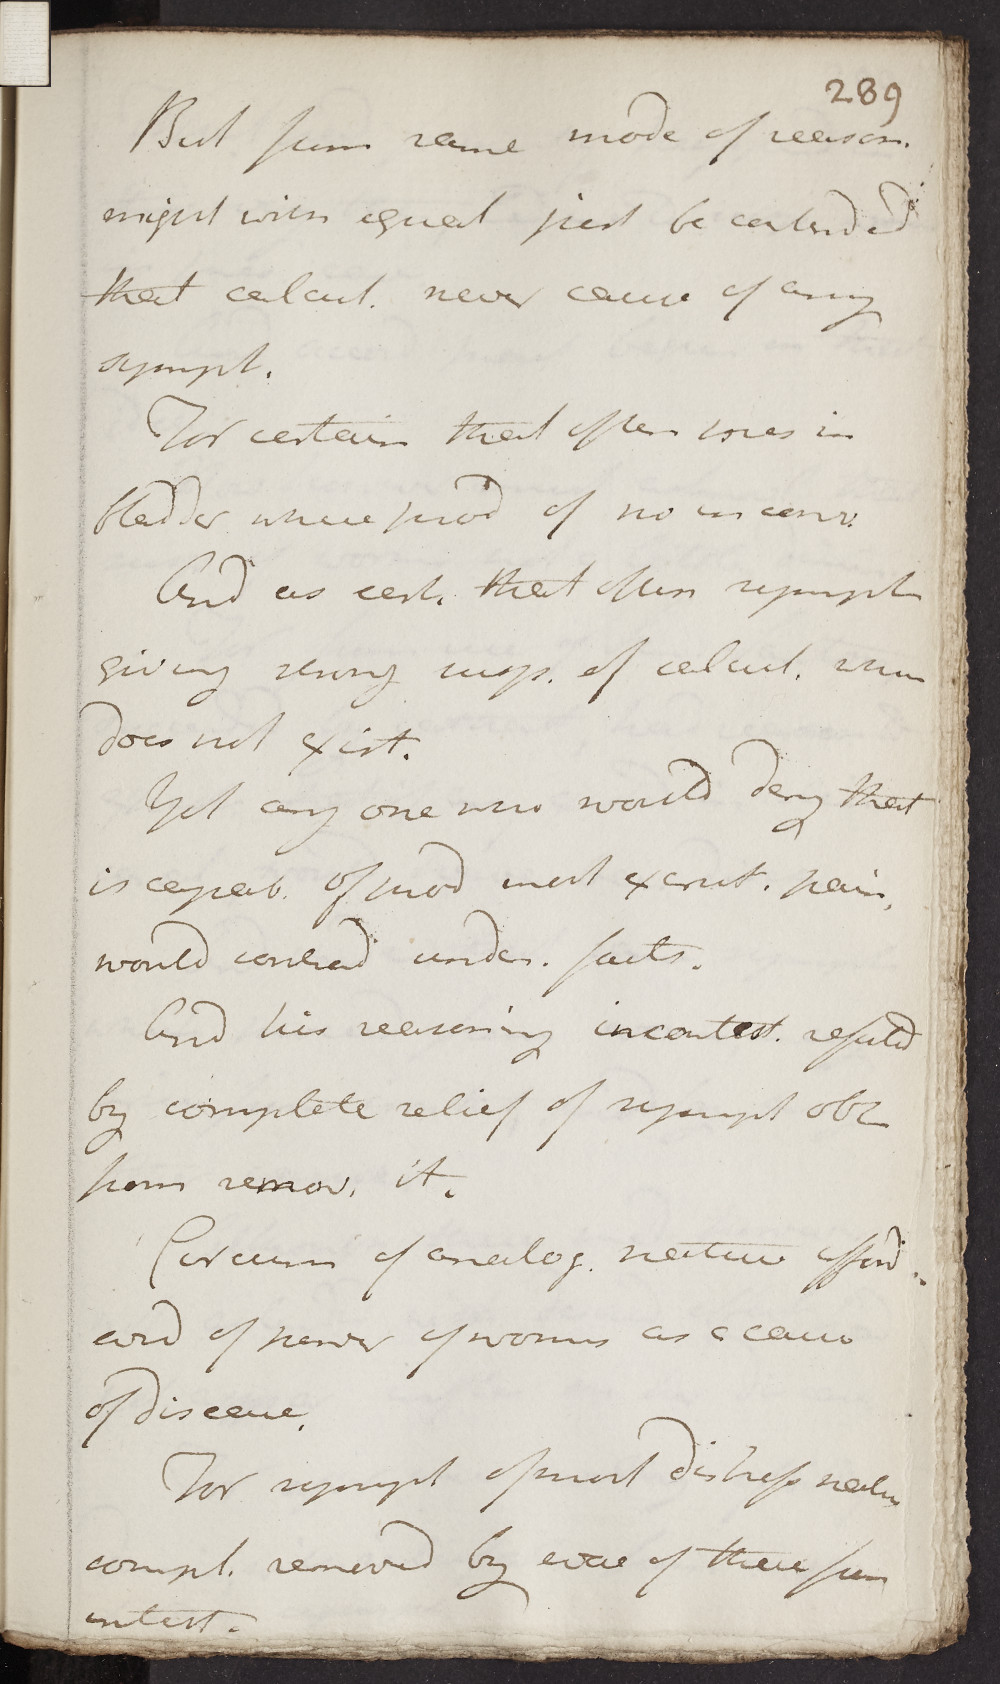 289
But from same mode of reason.
might with equal just be contended
that calcul. never cause of any
sympt.
For certain that often in
bladder where prod of no inconv.
And as cert. that often sympt
giving strong susp. of calcul. when
does not exist.
Yet any one who would deny that
is capab. of prod most excrut. pain,
would contrad under. facts.
And his reasoning incontest. refuted
by complete relief of sympt obt
from remov. it.
Circum of analog. nature afford
evid of power of worms as a cause
of disease.
For sympt of most distress nature
compl. removed by evac of these from
intest.